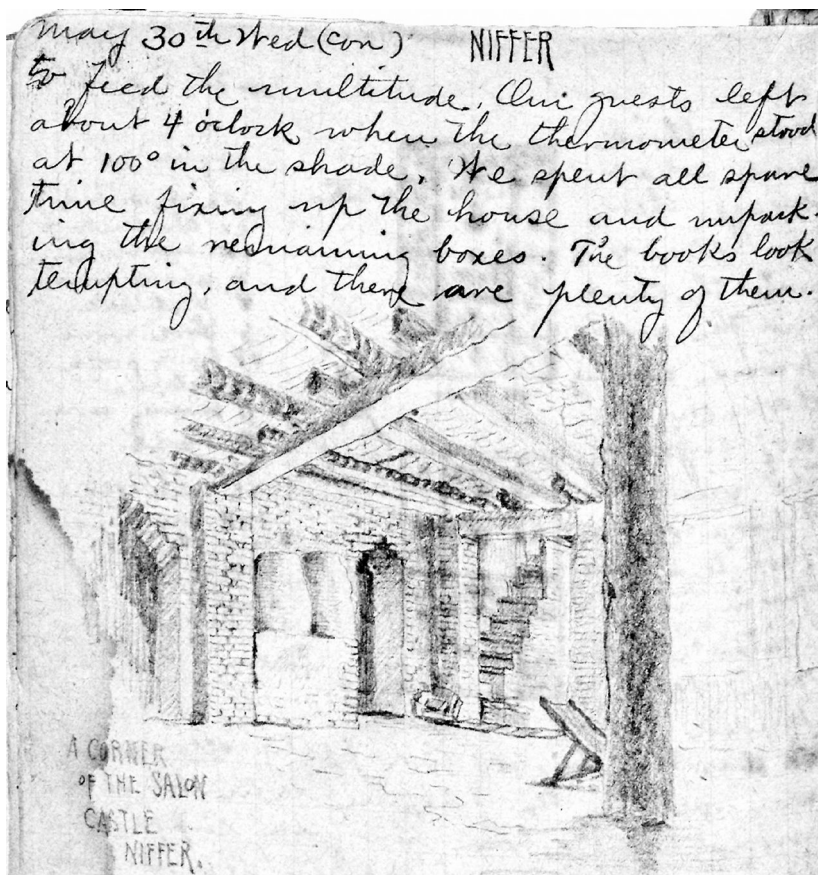 May 30th Wed (con) NIFFER
to feed the multitude. Our guests left
about 4 o'clock when the thermometer stood
at 100° in the shade. We spent all spare
time fixing up the house and unpack-
ing the remaining boxes. The books look
tempting, and there are plenty of them.
A CORNER
OF THE SALON
CASTLE
NIFFER.